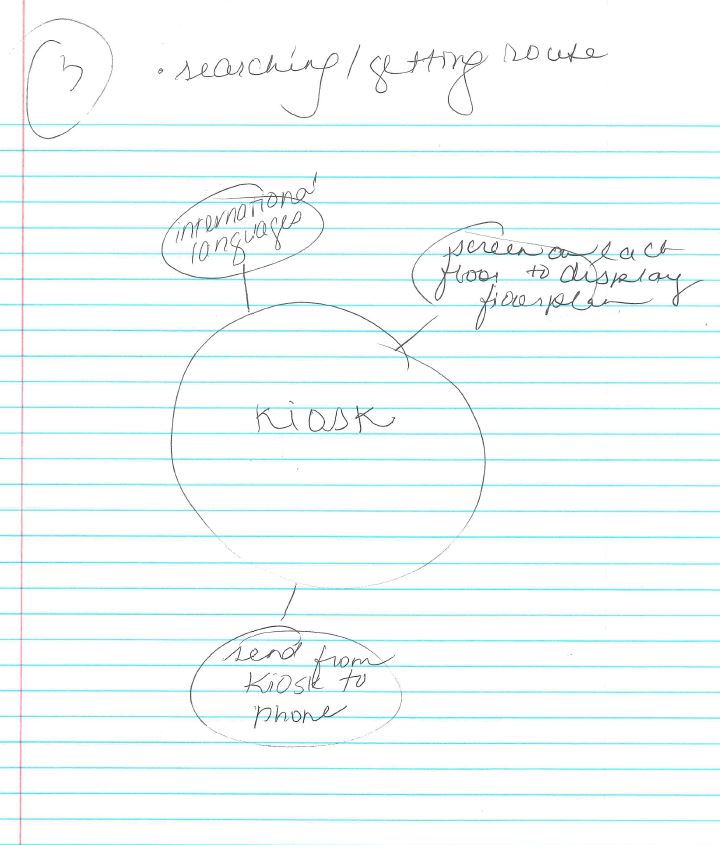 3
· searching / getting route
international
languages
screen on each
floor to display
floorplan
Kiosk
send from
Kiosk to
phone